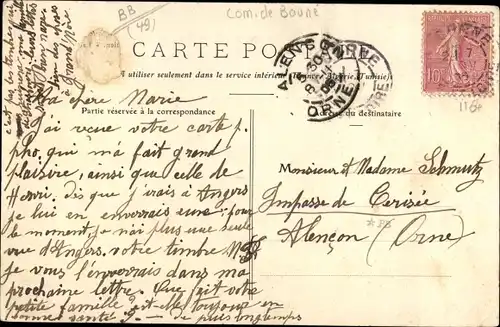 BB
(49)
Com: de Bauné
CARTE PO
A utiliser seulement dans le service intérieur (France, Algérie, Tunisie)
Partie réservée à la correspondance
Adresse du destinataire
ALENÇON
ORNE
10
Ma chère Marie
J'ai reçue votre carte p.
pho. qui m'a fait grand
plaisire, ainsi que celle de
Henri. dis que j'irais à Angers
je lui en enverrais une: pour
le moment, je n'ai plus une seule
vue d'Angers. votre timbre
je vous l'enverrais dans ma
prochaine lettre. Que fait votre
petite famille? est-elle toujours en
bonne santé? - de puis longtemps
c'est pas le temps
Grand Mère
Monsieur et Madame Schmutz
Impasse de Cerisée
Alençon (Orne)